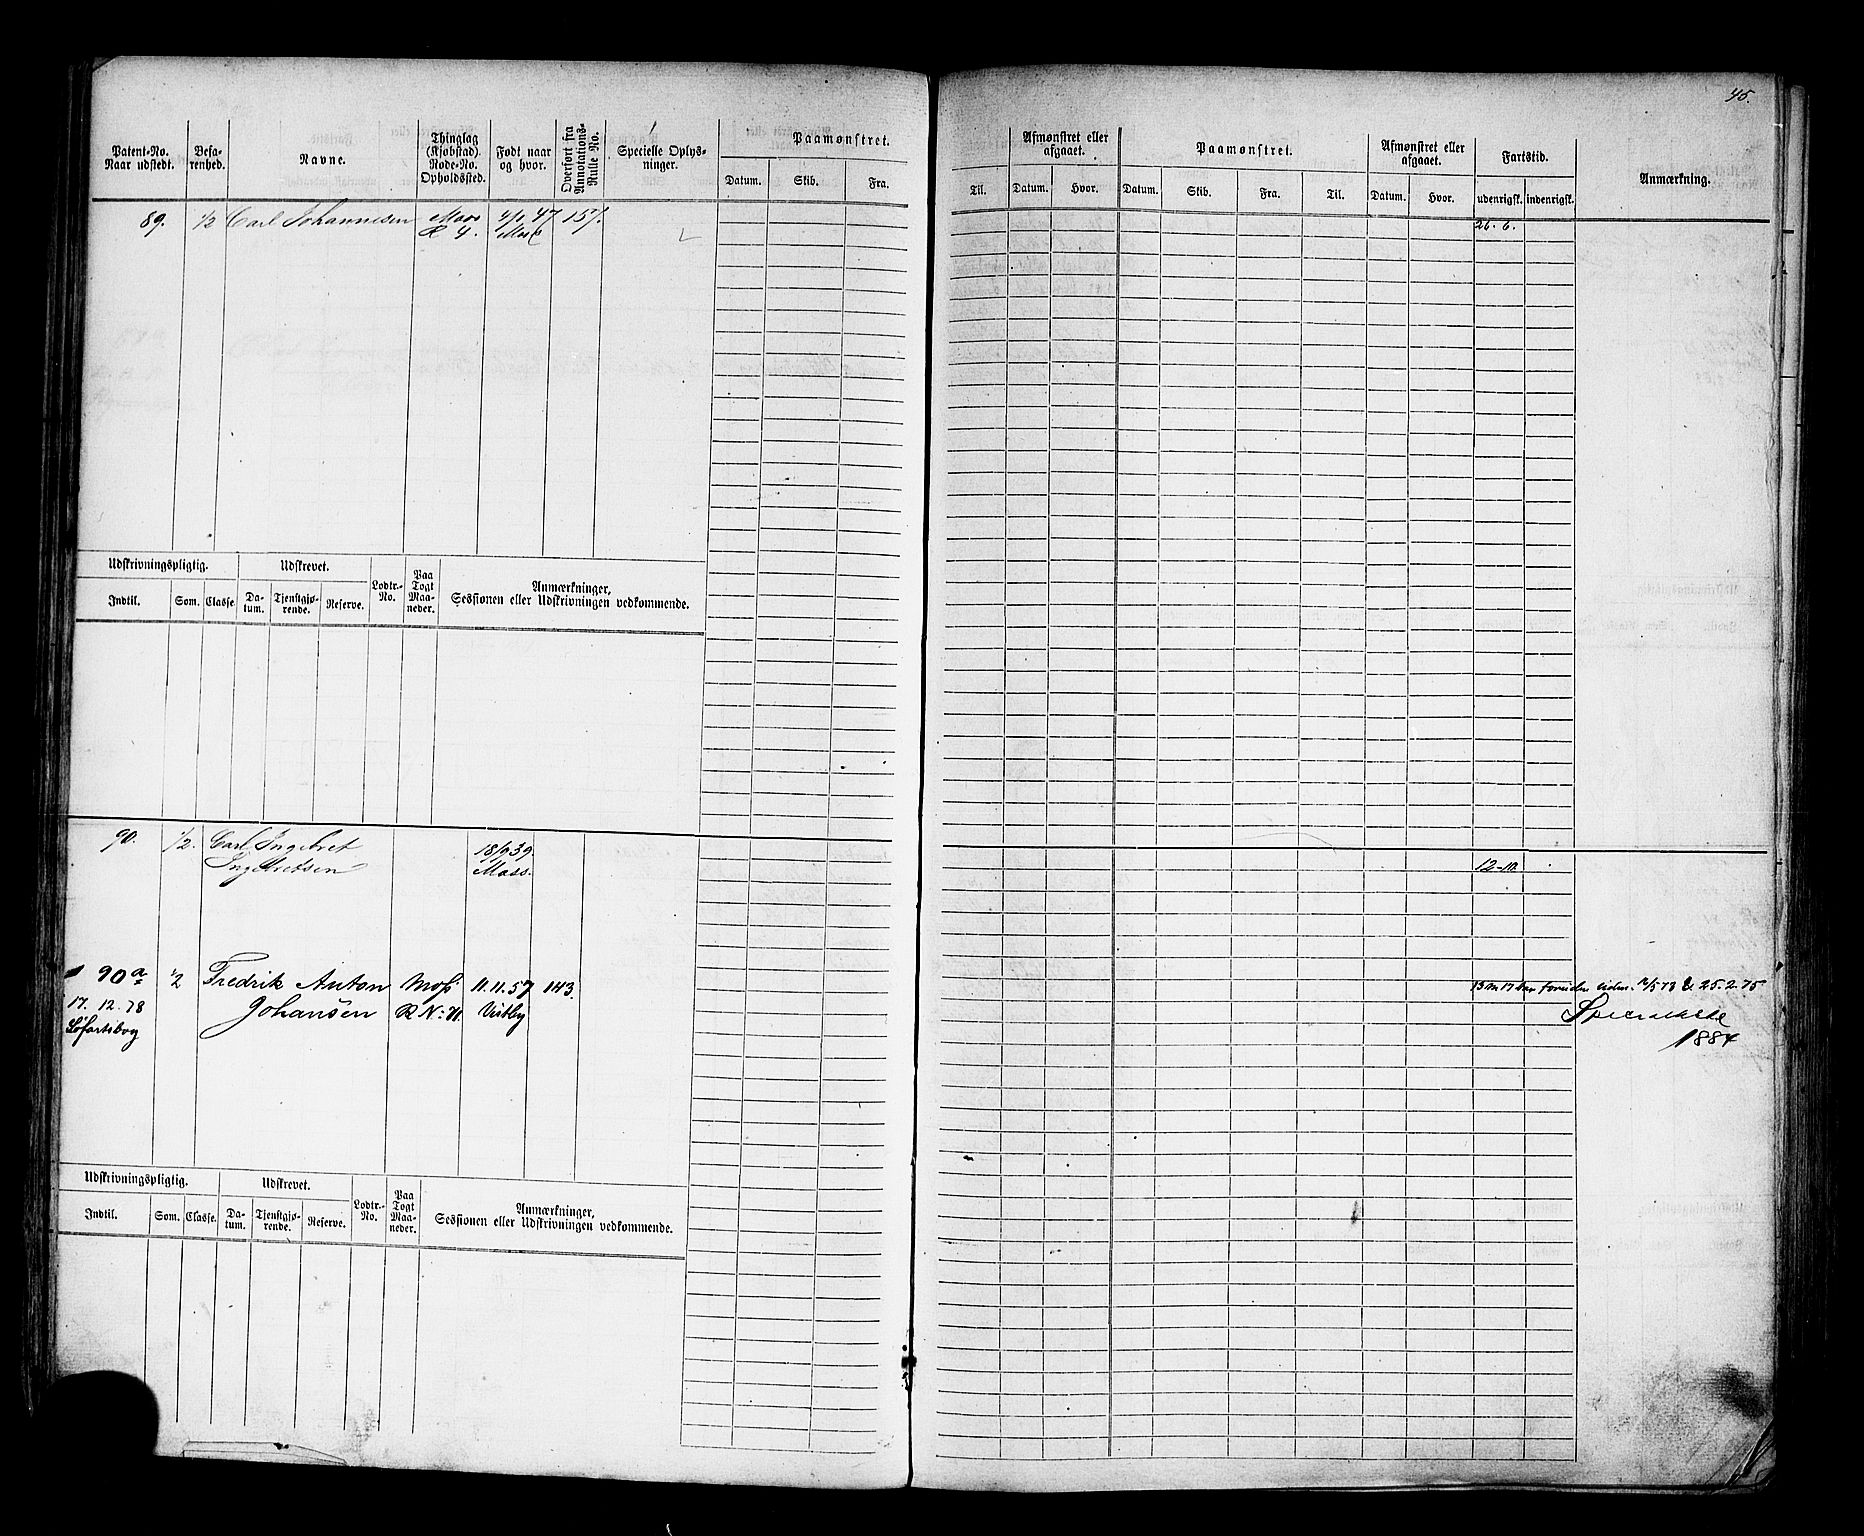 45.
Patent-No. Naar udstedt.
Befarenhed.
Navne.
Thinglag (Kjøbstad) Rode-No. Opholdssted.
Født naar og hvor.
Overført fra Annotations-Rulle No.
Specielle Oplysninger.
Paamønstret.
Datum. Skib. Fra.
Til.
Afmønstret eller afgaaet.
Datum. Hvor.
Paamønstret.
Datum. Skib. Fra. Til.
Afmønstret eller afgaaet.
Datum. Hvor.
Fartstid.
udenrigsk. indenrigsk.
Anmærkning.
89. 1/2 Carl Johannesen Moss 47 157.
R 4. Moss
26. 6.
Udskrivningspligtig. Udskrevet. Lodtr.-No. Paa Togt Maaneder. Anmærkninger, Sessionen eller Udskrivningen vedkommende.
Indtil. Som. Classe. Datum. Tjenstgjørende. Reserve.
90. 1/2. Carl Ingebret 18/9 39.
Ingebretsen Moss.
12-
90a 1/2 Fredrik Anton Moss 11.11.57 143
17. 12. 78 Johansen R No: 71 Visby
Søfartsbog
25.2.75
1884
Udskrivningspligtig. Udskrevet. Lodtr.-No. Paa Togt Maaneder. Anmærkninger, Sessionen eller Udskrivningen vedkommende.
Indtil. Som. Classe. Datum. Tjenstgjørende. Reserve.